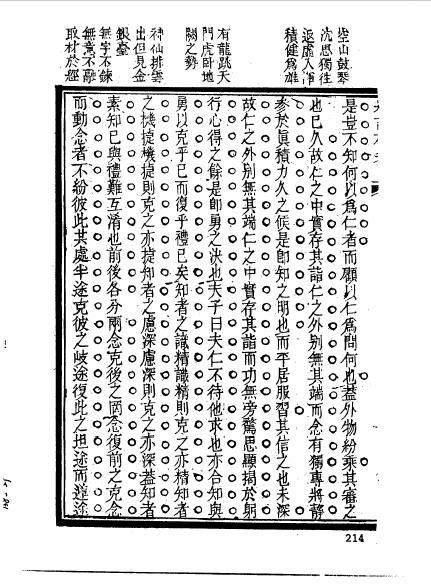 空山鼓琴
沈思獨往
返虛入渾
積健為雄
有龍跳天
門虎卧地
闕之勢
神仙排雲
出但見金
銀臺
無字不鍊
無意不融
取材於經
是豈不知何以為仁者而顧以仁為問何也蓋外物紛乘其審之
也已久故仁之中實存其詣仁之外別無其端而念有獨專將靜
參於眞積力久之候是即知之明也而平居服習其信之也未深
故仁之外別無其端仁之中實存其詣而功無旁騖思顯揭於躬
行心得之餘是即勇之決也夫子曰夫仁不待他求也亦合知與
勇以克乎已而復乎禮已矣知者之識精識精則克之亦精知者
之機捷機捷則克之亦捷知者之慮深慮深則克之亦深蓋知者
素知已與禮難互淆也前後各分兩念克後之罔念復前之克念
而動念者不紛彼此共處半途克彼之歧途復此之坦途而遵途
214